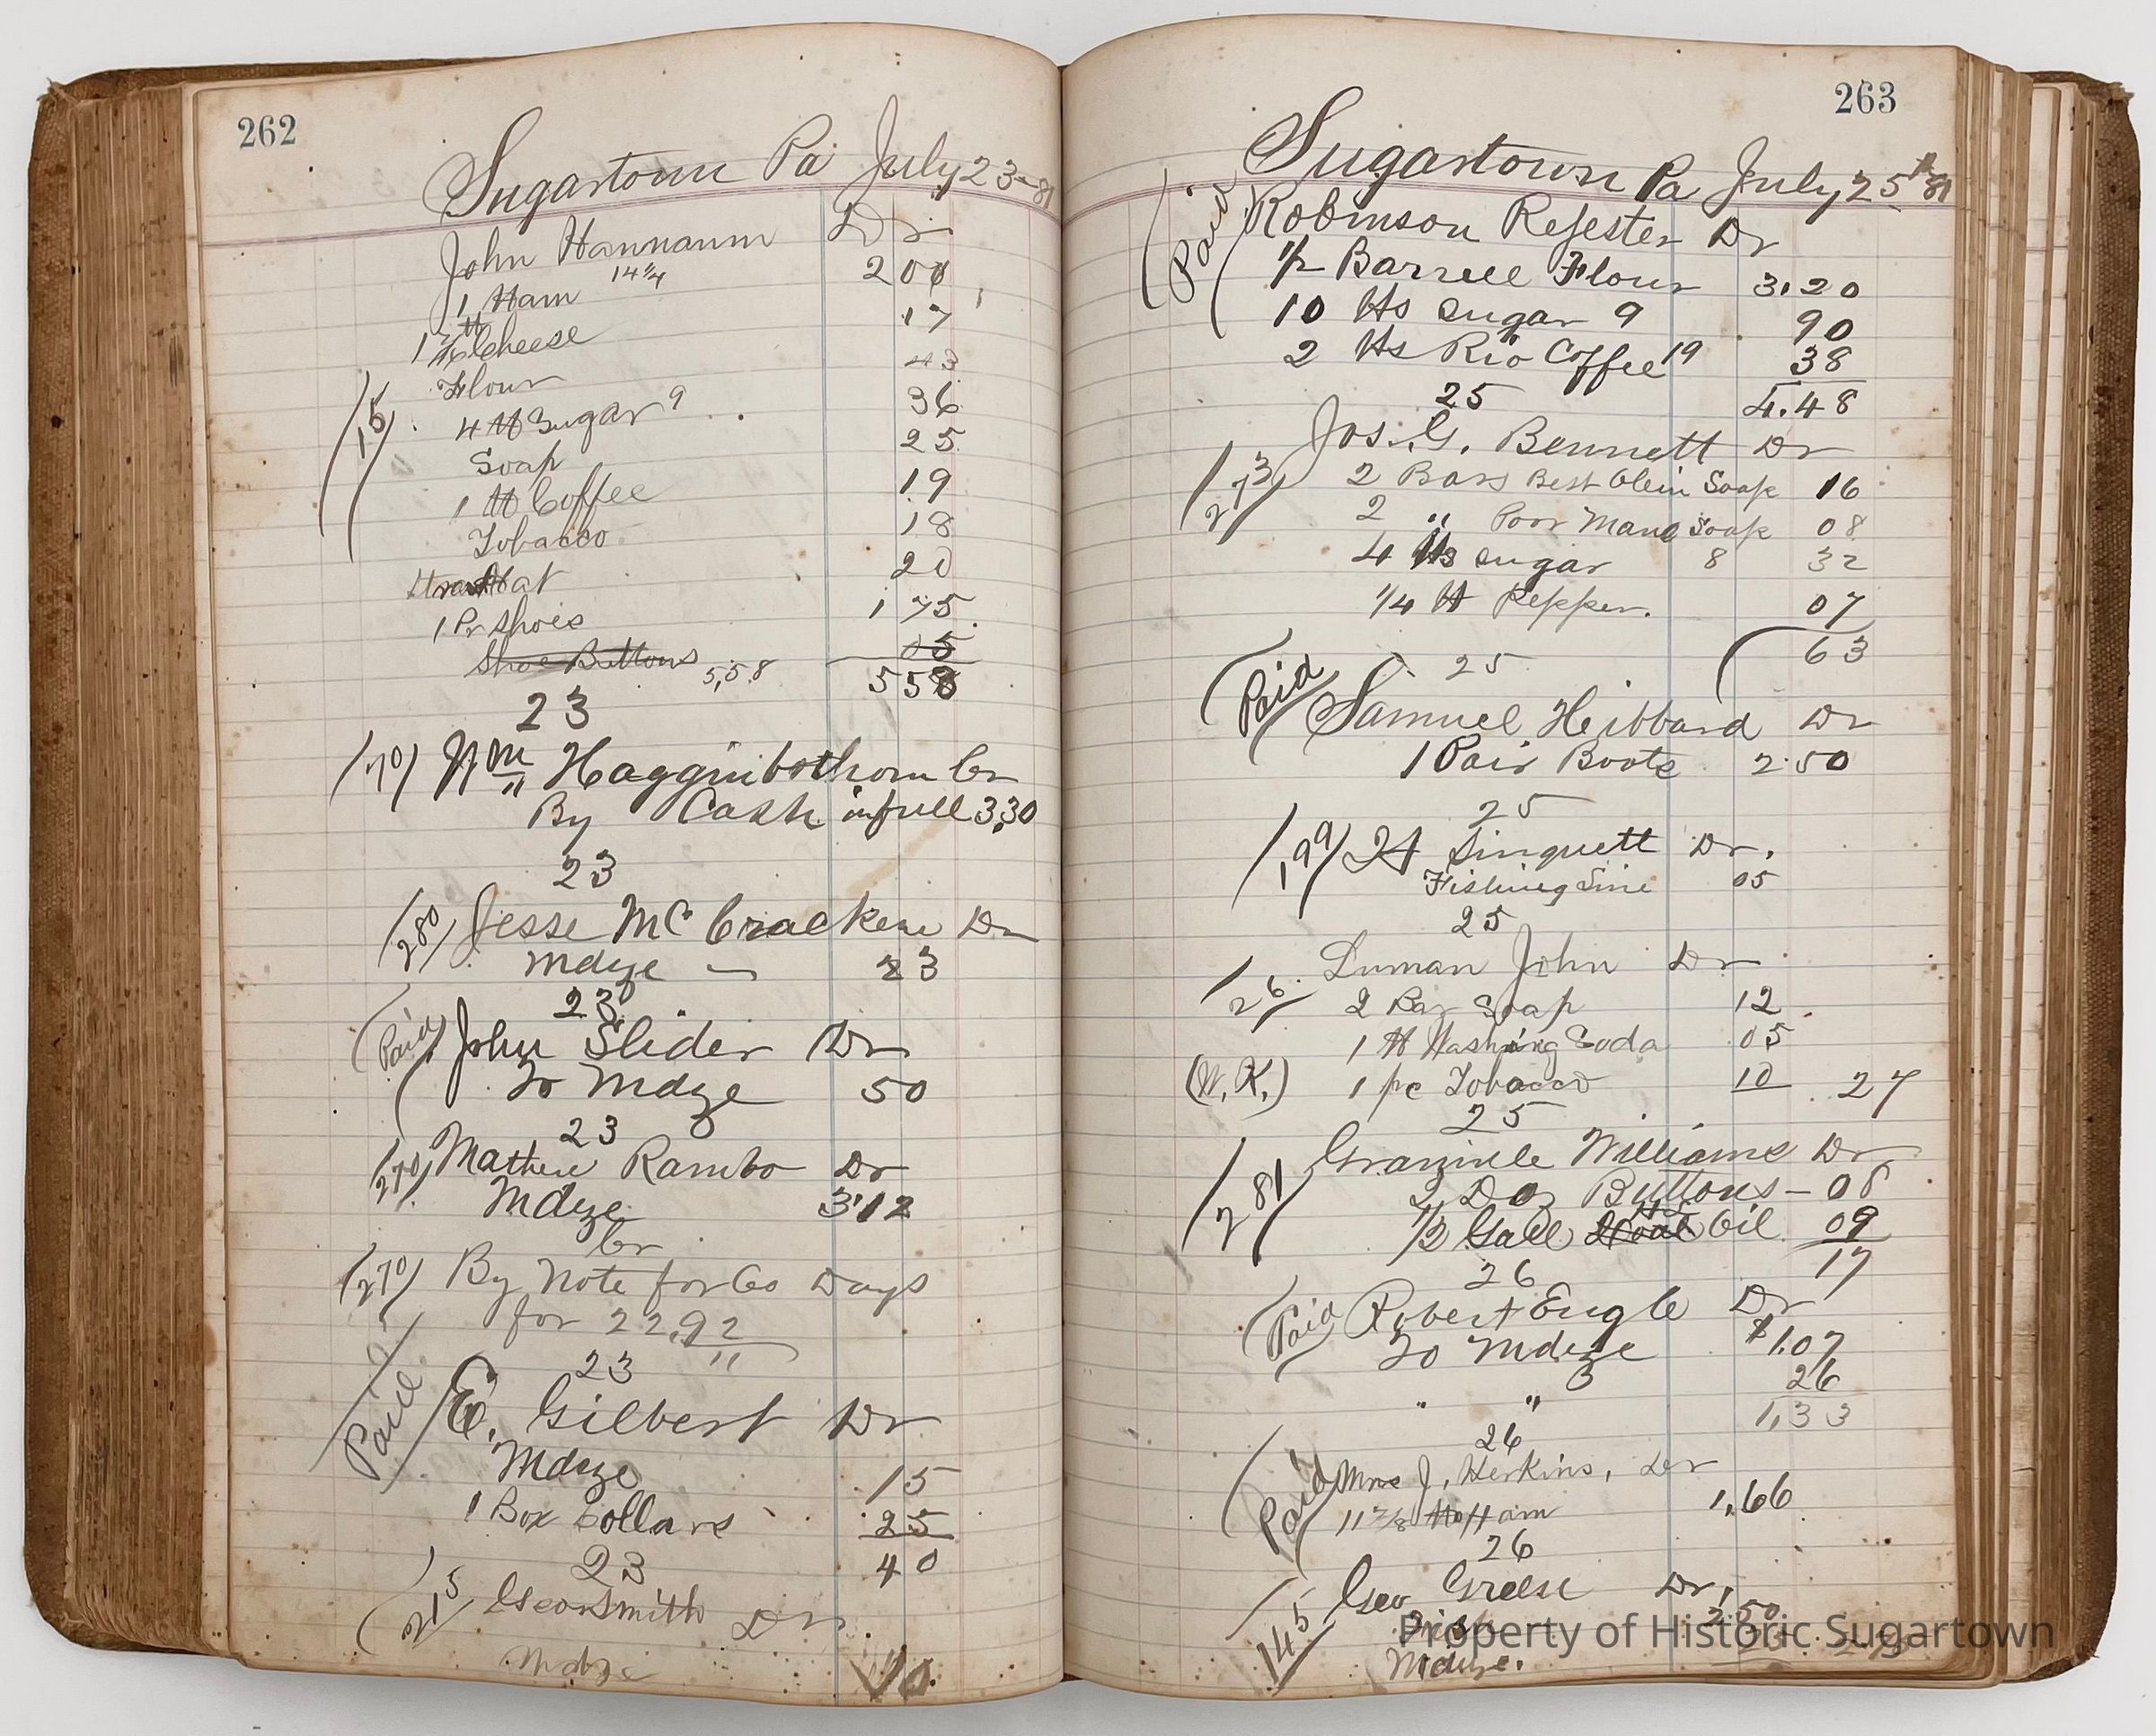 262
Sugartown Pa July 23-81
John Hannanm Dr
1 Ham 14 1/4 200
1 Cheese 17
Flour 43
(15) 4 lb Sugar 9 36
Soap 25
1 lb Coffee 19
Tobacco 18
Straw Hat 20
1 Pr Shoes 1 75
Shoe Buttons 05
5,58 558
23
(70) Wm Hagginbothom Cr
By Cash in full 3,30
23
(280) Jesse McCracken Dr
Mdze 23
23
(Paid) John Slider Dr
To Mdze 50
23
(270) Mathew Rambo Dr
Mdze 3.12
Cr
(270) By Note for 60 Days
for 22,92
23
Paid E. Gilbert Dr
Mdze 15
1 Box Collars 25
40
23
(215) Geo Smith Dr
Mdze 70
263
Sugartown Pa July 25th 81
(Paid) Robinson Dr
1/2 Barrell Flour 3.20
10 lbs Sugar 9 90
2 lbs Rio Coffee 19 38
4.48
25
Jos. G. Bennett Dr
(273) 2 Bars Best Olein Soap 16
2 " Poor Mans Soap 08
4 lbs sugar 8 32
1/4 lb Pepper. 07
63
25
(Paid) Samuel Hibbard Dr
1 Pair Boots 2.50
25
(199) Singuett Dr.
Fishing Line 05
25
Luman John Dr
(26) 2 Bar Soap 12
1 lb Washing Soda 05
(W.K.) 1 pc Tobacco 10 27
25
(281) Granville Williams Dr
2 Doz Buttons - 08
1/2 Gall Oil 09
17
26
(Paid) Robert Engle Dr
To Mdze $1.07
" " 26
1,33
26
(Paid) Mrs J. Herkins, Dr
11 7/8 lb Ham 1.66
26
(145) Geo Greese Dr,
2.50
Mdze.
Property of Historic Sugartown